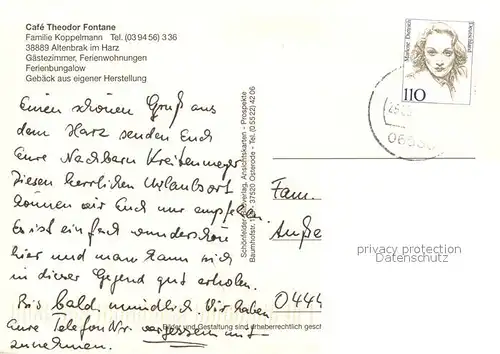 Café Theodor Fontane
Familie Koppelmann Tel. (03 94 56) 3 36
38889 Altenbrak im Harz
Gästezimmer, Ferienwohnungen
Ferienbungalow
Gebäck aus eigener Herstellung
Einen schönen Gruß aus
dem Harz senden Euch
Eure Nachbarn Kreitenmeyer
Diesen herrlichen Urlaubsort
können wir Euch nur empfehlen
Es ist einfach wunderschön
hier und man kann sich
in dieser Gegend gut erholen.
Bis bald mündlich. Wir haben
Eure Telefon Nr. vergessen mit-
zunehmen.
Schönfelder Verlag, Ansichtskarten - Prospekte
37520 Osterode - Tel. (0 55 22) 42 06
Marlene Dietrich
Deutschland
110
Fam.
Auße
0444
privacy protection
Datenschutz
Bilder und Gestaltung sind urheberrechtlich gesch